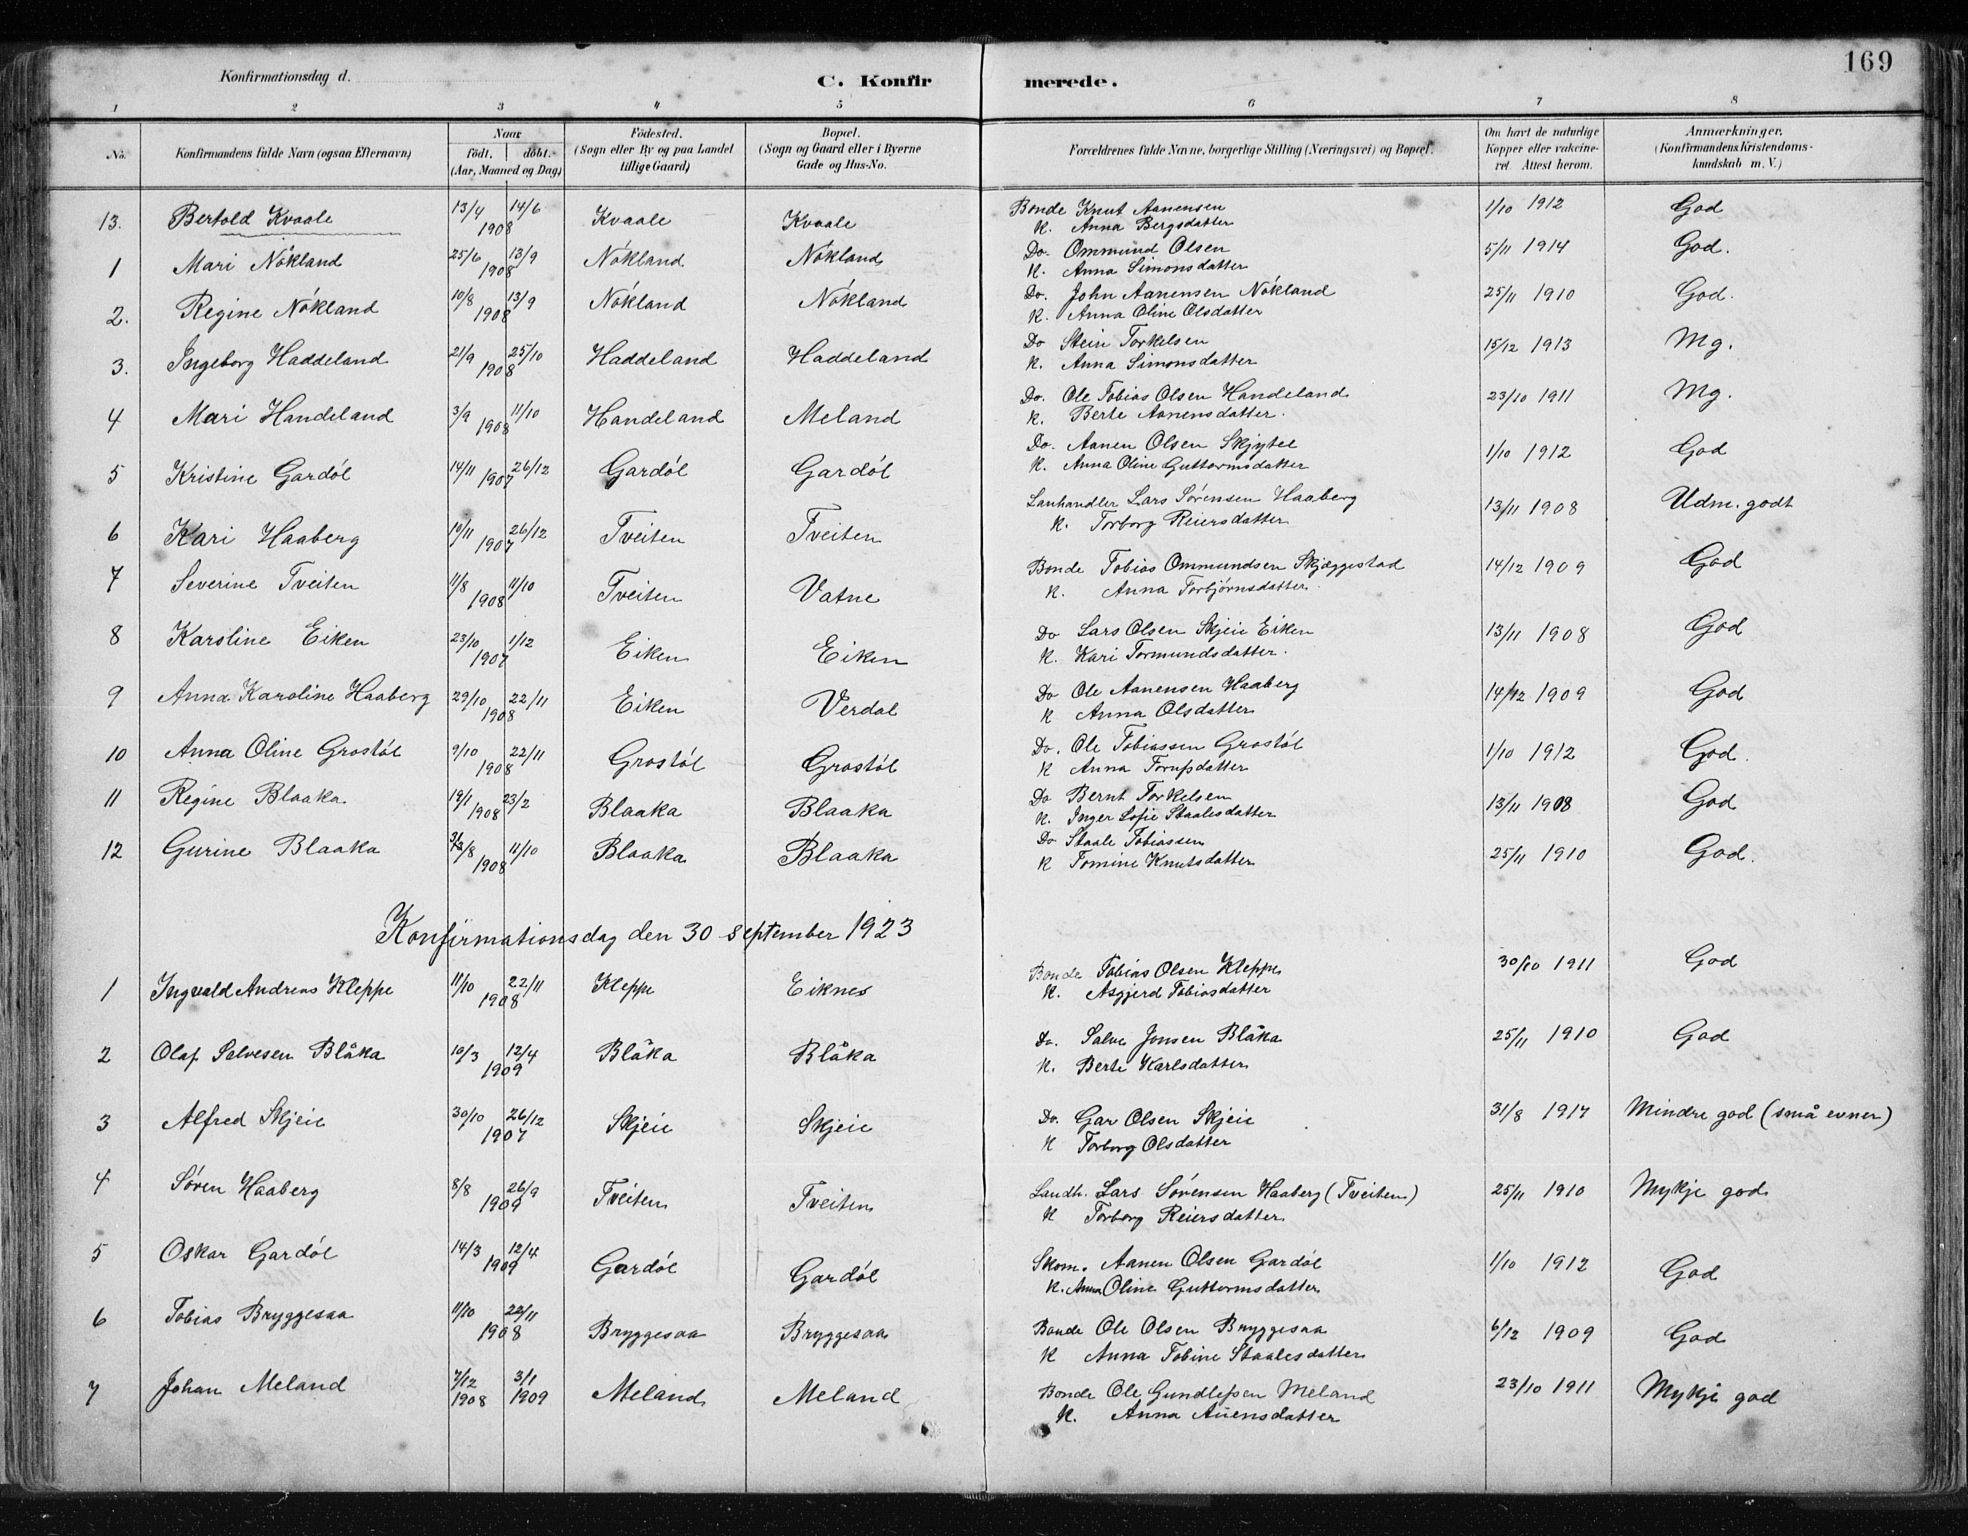 169
Konfirmationsdag d. C. Konfirmerede.
1 2 3 4 5 6 7 8
No. Konfirmandens fulde Navn (ogsaa Efternavn) Naar født. døbt. (Aar, Maaned og Dag) Födested. (Sogn eller By og paa Landet tillige Gaard) Bopæl. (Sogn og Gaard eller i Byerne Gade og Hus-No. Forældrenes fulde Navne, borgerlige Stilling (Næringsvei) og Bopæl. Om havt de naturlige Kopper eller vakcineret. Attest herom. Anmærkninger. (Konfirmandens Kristendomskundskab m. V.)
13. Bertold Kvaale 13/4 14/6 1908 Kvaale Kvaale Bonde Knut Aanensen 1/10 1912 God
K. Anna Bergsdatter
1 Mari Nökland 25/6 13/9 1908 Nökland Nökland Do. Ommund Olsen 5/11 1914 God.
K. Anna Simonsdatter
2. Regine Nökland 10/8 13/9 1908 Nökland Nökland Do. John Aanensen Nökland 25/11 1910 God.
K. Anna Oline Olsdatter
3. Ingeborg Haddeland 21/9 25/10 1908 Haddeland Haddeland Do Stein Torkelsen 15/12 1913 Mg.
K. Anna Simonsdatter
4 Mari Handeland 3/9 11/10 1908 Handeland Meland Do. Ole Tobias Olsen Handeland 23/10 1911 Mg.
K. Berte Aanensdatter.
5 Kristine Gardöl 14/11 26/12 1907 Gardöl Gardöl Do. Aanen Olsen Skjytel 1/10 1912 God
K. Anna Oline Guttormsdatter
6 Kari Haaberg 19/11 26/12 1907 Tveiten Tveiten Lanhandler Lars Sørensen Haaberg 13/11 1908 Udm. godt
K. Torborg Reiersdatter
7 Severine Tveiten 11/8 11/10 1908 Tveiten Vatne Bonde Tobias Ommundsen Skjæggestad 14/12 1909 God
K. Anna Torbjørnsdatter
8 Karoline Eiken 23/10 1/12 1907 Eiken Eiken Do Lars Olsen Skjeie Eiken 13/11 1908 God
K. Kari Tormundsdatter.
9 Anna Karoline Haaberg 29/10 22/11 1908 Eiken Verdal Do Ole Aanensen Haaberg 14/12 1909 God
K Anna Olsdatter
10 Anna Oline Grostöl 9/10 22/11 1908 Grostöl Grostöl Do. Ole Tobiassen Grostöl 1/10 1912 God.
K Anna Torupsdatter
11 Regine Blaaka 19/1 23/2 1908 Blaaka Blaaka Do Bernt Torkelsen 13/11 1908 God
K. Inger Sofie Staalesdatter
12 Gurine Blaaka /8 11/10 1908 Blaaka Blaaka Do Staale Tobiassen 25/11 1910 God.
K Tomine Knutsdatter
Konfirmationsdag den 30 september 1923
1 Ingvald Andreas Kleppe 11/10 22/11 1908 Kleppe Eiknes Bonde Tobias Olsen Kleppe 30/10 1911 God
K. Asgjerd Tobiasdatter
2 Olaf Salvesen Blåka 10/3 12/4 1909 Blåka Blåka Do. Salve Jonsen Blåka 25/11 1910 God
K. Berte Karlsdatter
3 Alfred Skjeie 30/10 26/12 1907 Skjeie Skjeie Do. Gar Olsen Skjeie 31/8 1917 Mindre god (små evner)
K Torborg Olsdatter
4 Sören Haaberg 8/8 26/9 1909 Tveiten Tveiten Landh. Lars Sørensen Haaberg (Tveiten) 25/11 1910 Mykje god
K Torborg Reiersdatter
5 Oskar Gardöl 14/3 12/4 1909 Gardöl Gardöl Skom. Aanen Olsen Gardöl 1/10 1912 God
K. Anna Oline Guttormsdatter
6 Tobias Bryggesaa 11/10 22/11 1908 Bryggesaa Bryggesaa Bonde Ole Olsen Bryggesaa 6/12 1909 God
K Anna Tobine Staalesdatter
7 Johan Meland 7/12 1908 3/1 1909 Meland Meland Bonde Ole Gundlefsen Meland 23/10 1911 Mykje god
K. Anna Auensdatter